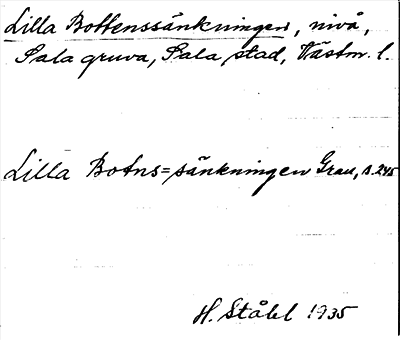 Lilla Bottenssänkningen, nivå,
Sala gruva, Sala stad, Västm. l.
Lilla Botns=sänkningen Grau, s. 245
H. Ståhl 1935